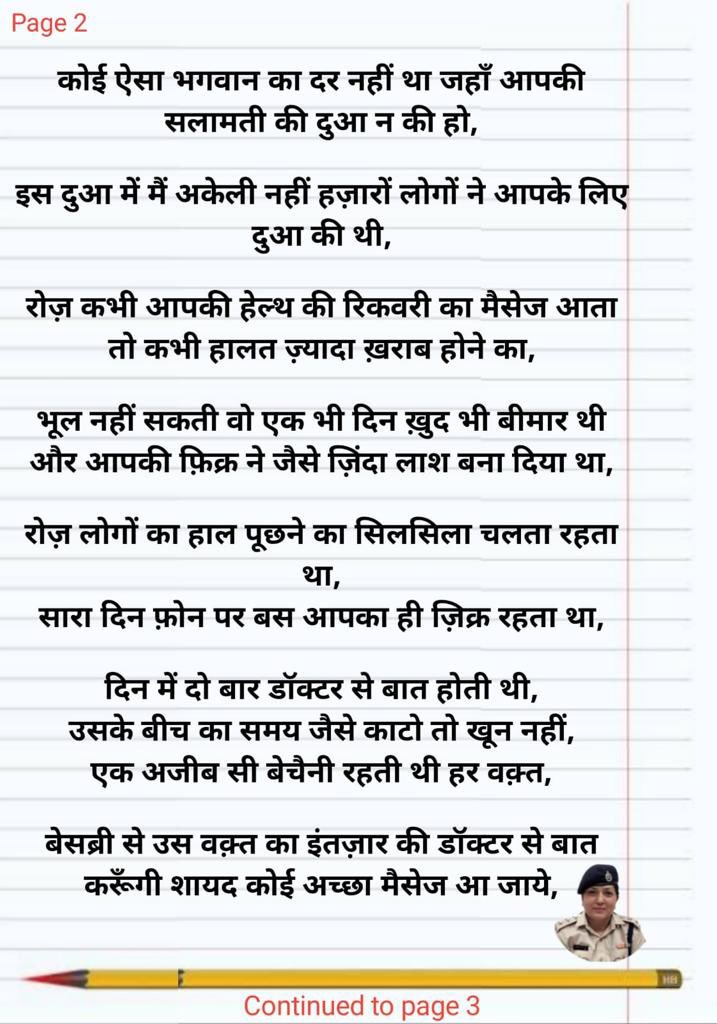 Page 2
कोई ऐसा भगवान का दर नहीं था जहाँ आपकी
सलामती की दुआ न की हो,
इस दुआ में मैं अकेली नहीं हज़ारों लोगों ने आपके लिए
दुआ की थी,
रोज़ कभी आपकी हेल्थ की रिकवरी का मैसेज आता
तो कभी हालत ज़्यादा ख़राब होने का,
भूल नहीं सकती वो एक भी दिन ख़ुद भी बीमार थी
और आपकी फ़िक्र ने जैसे ज़िंदा लाश बना दिया था,
रोज़ लोगों का हाल पूछने का सिलसिला चलता रहता
था,
सारा दिन फ़ोन पर बस आपका ही ज़िक्र रहता था,
दिन में दो बार डॉक्टर से बात होती थी,
उसके बीच का समय जैसे काटो तो खून नहीं,
एक अजीब सी बेचैनी रहती थी हर वक़्त,
बेसब्री से उस वक़्त का इंतज़ार की डॉक्टर से बात
करूँगी शायद कोई अच्छा मैसेज आ जाये,
HB
Continued to page 3